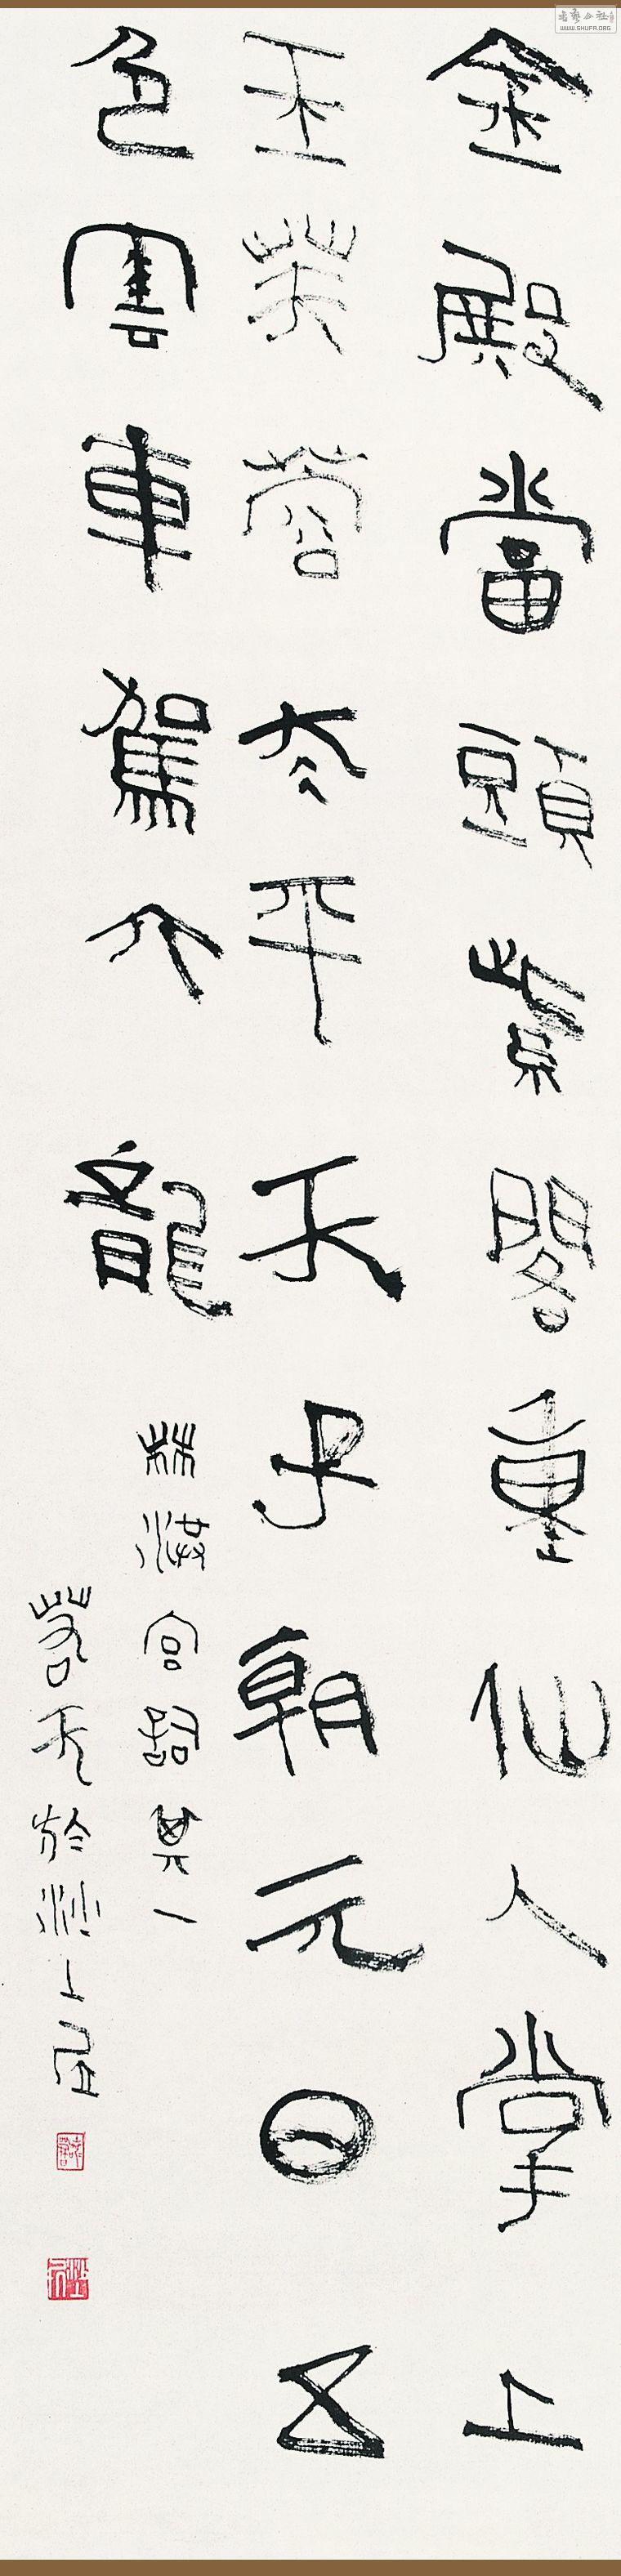 金殿當頭紫閣重仙人掌上
玉芙蓉太平天子朝元日五
色雲車駕六龍
林漢宮詞其一
若天於沙上居
WWW.SHUFA.ORG